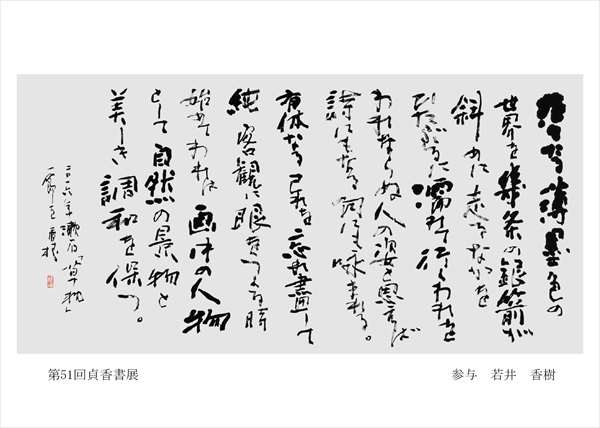 茫々たる薄墨色の
世界を幾条の銀箭が
斜めに走るなかを
ひたぶるに濡れて行くわれを
われならぬ人の姿と思えば
詩にもなる句にも咏まれる。
有体なる己れを忘れ盡して
純客観に眼をつくる時
始めてわれは画中の人物
として自然の景物と
美しき調和を保つ。
漱石「草枕」
一節を 香樹
第51回貞香書展
参与 若井 香樹